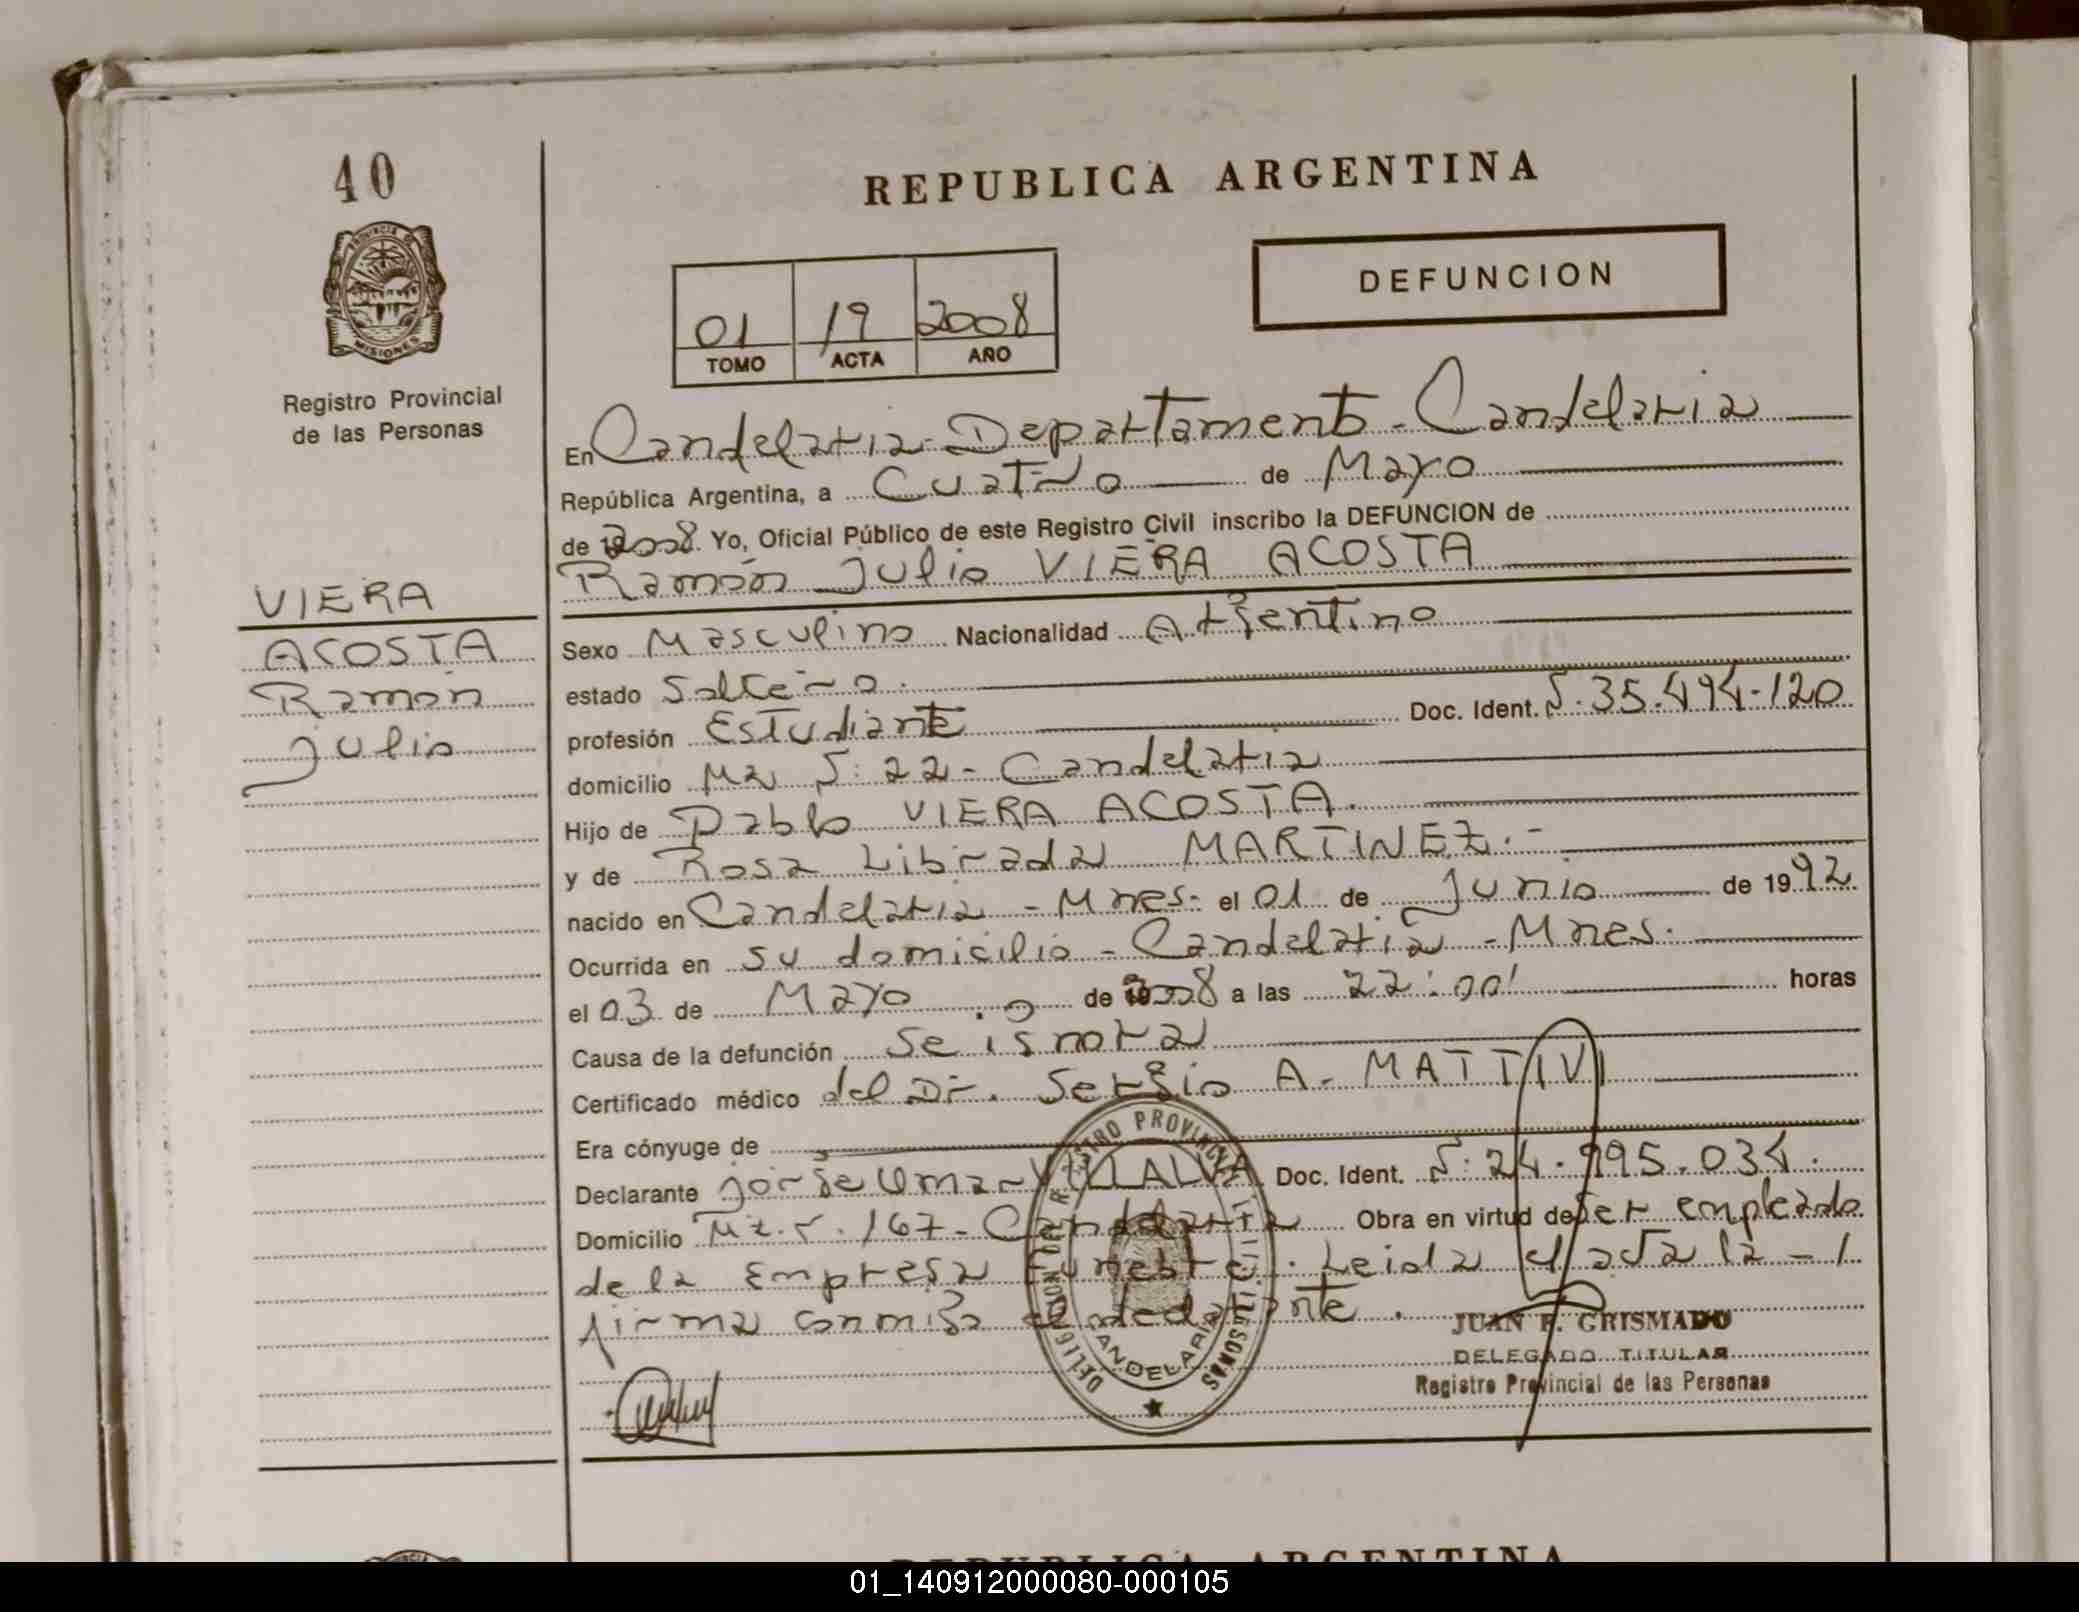 40
REPUBLICA ARGENTINA
PROVINCIA D
MISIONES
DEFUNCION
01 19 2008
TOMO ACTA AÑO
Registro Provincial
de las Personas
En Candelaria - Departamento - Candelaria
República Argentina, a Cuatro de Mayo
de 2008. Yo, Oficial Público de este Registro Civil inscribo la DEFUNCION de
Ramón Julio VIERA ACOSTA
VIERA
ACOSTA
Ramón
Julio
Sexo Masculino Nacionalidad Argentino
estado Soltero.
profesión Estudiante Doc. Ident. N: 35.494.120
domicilio Mz N: 22 - Candelaria
Hijo de Pablo VIERA ACOSTA.
y de Rosa Librada MARTINEZ.-
nacido en Candelaria - Mnes. el 01 de Junio de 1992
Ocurrida en su domicilio - Candelaria - Mnes.
el 03 de Mayo de 2008 a las 22:00' horas
Causa de la defunción se ignora
Certificado médico del Dr. Sergio A. MATTIVI
Era cónyuge de
Declarante Jorge Omar VILLALVA Doc. Ident. N: 24.995.034.
Domicilio Mz. N. 167 - Candelaria Obra en virtud de ser empleado
de la Empresa Funebre. Leida el acta la - /
firma conmigo el declarante.
JUAN F. GRISMADO
DELEGADO TITULAR
Registro Provincial de las Personas
CANDELARIA
REPUBLICA ARGENTINA
01_140912000080-000105